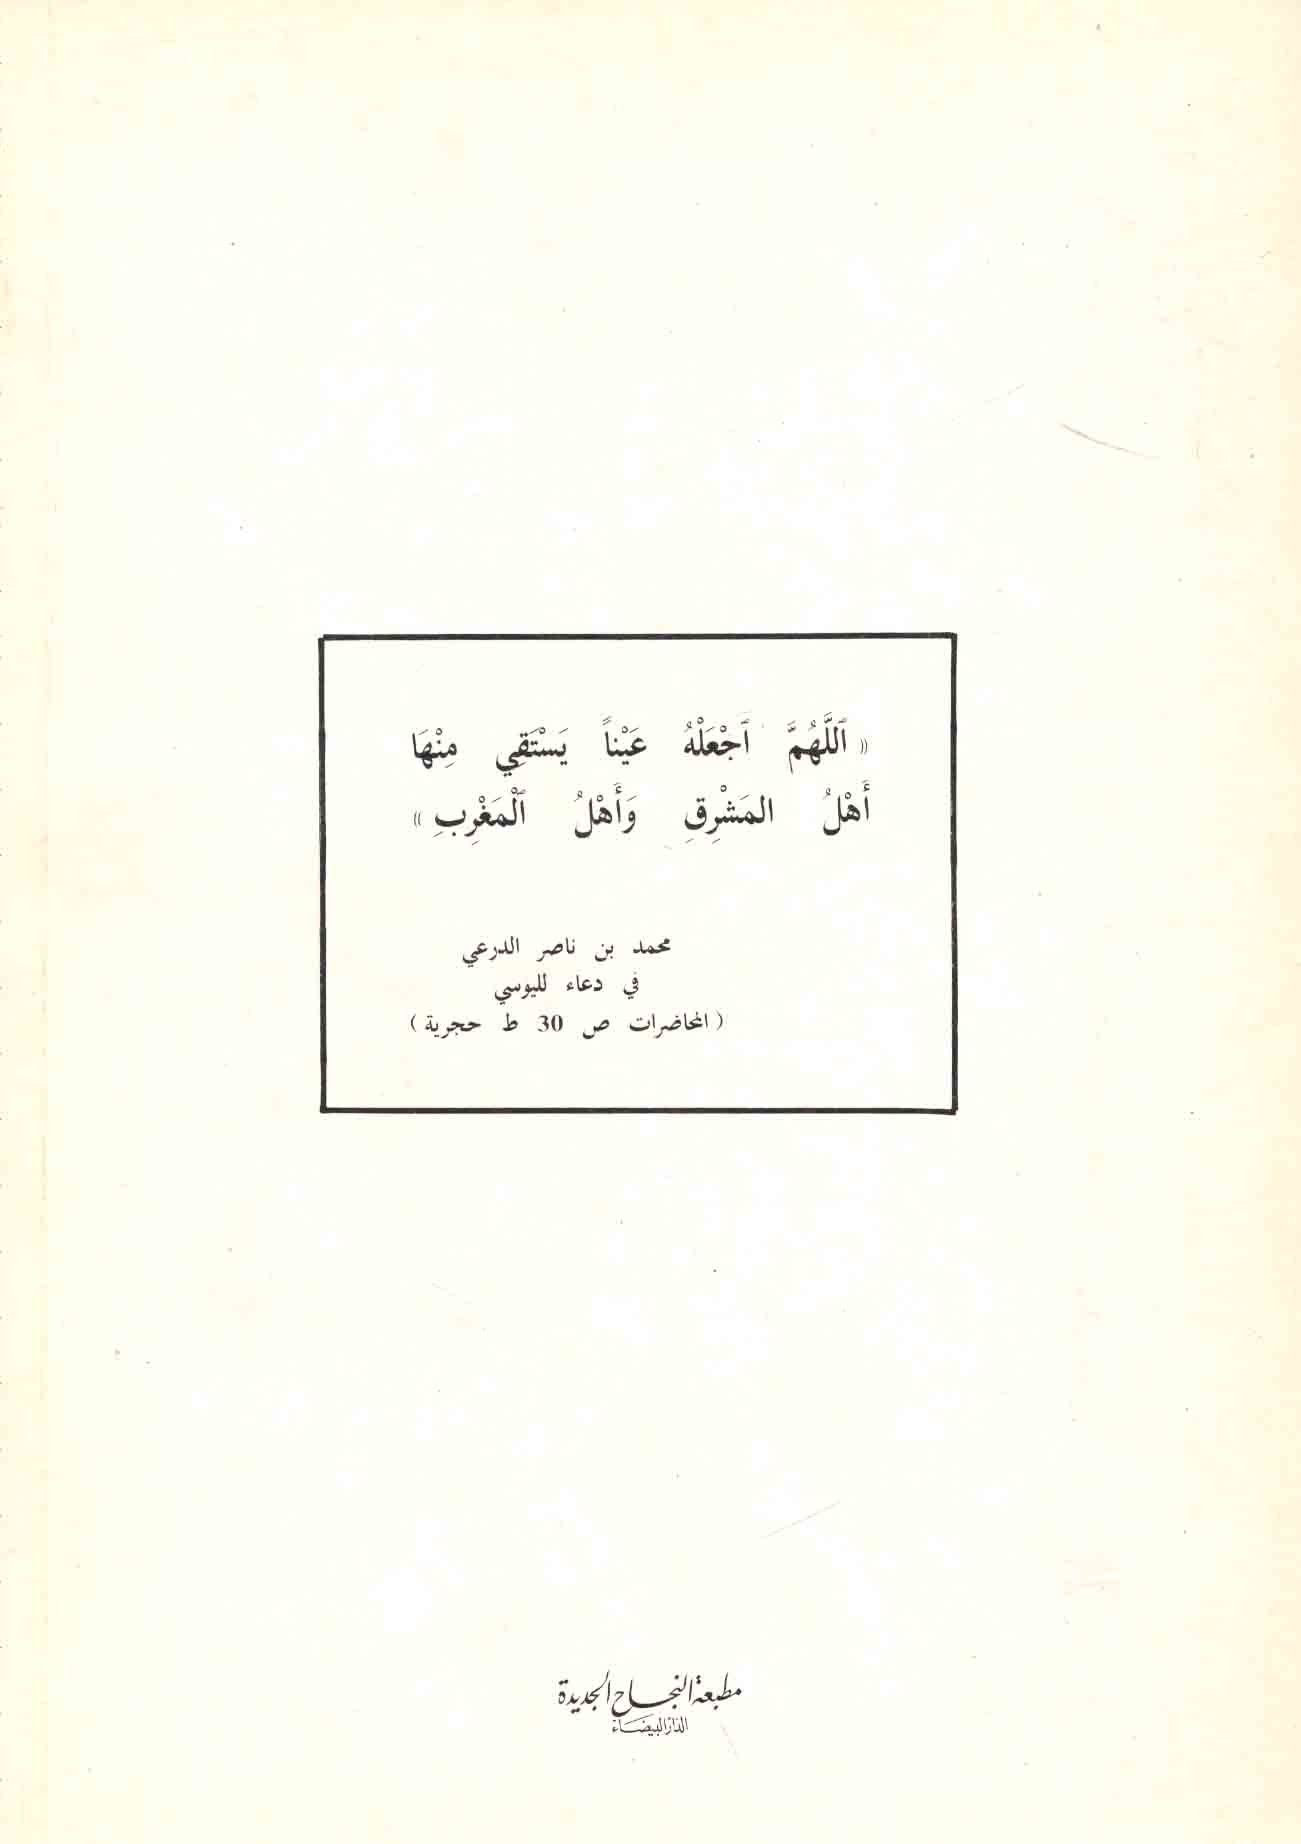 « ٱللَّهُمَّ ٱجْعَلْهُ عَيْناً يَسْتَقِي مِنْهَا
أَهْلُ المَشْرِقِ وَأَهْلُ ٱلْمَغْرِبِ »
محمد بن ناصر الدرعي
في دعاء لليوسي
( المحاضرات ص 30 ط حجرية )
مطبعة النجاح الجديدة
الدار البيضاء